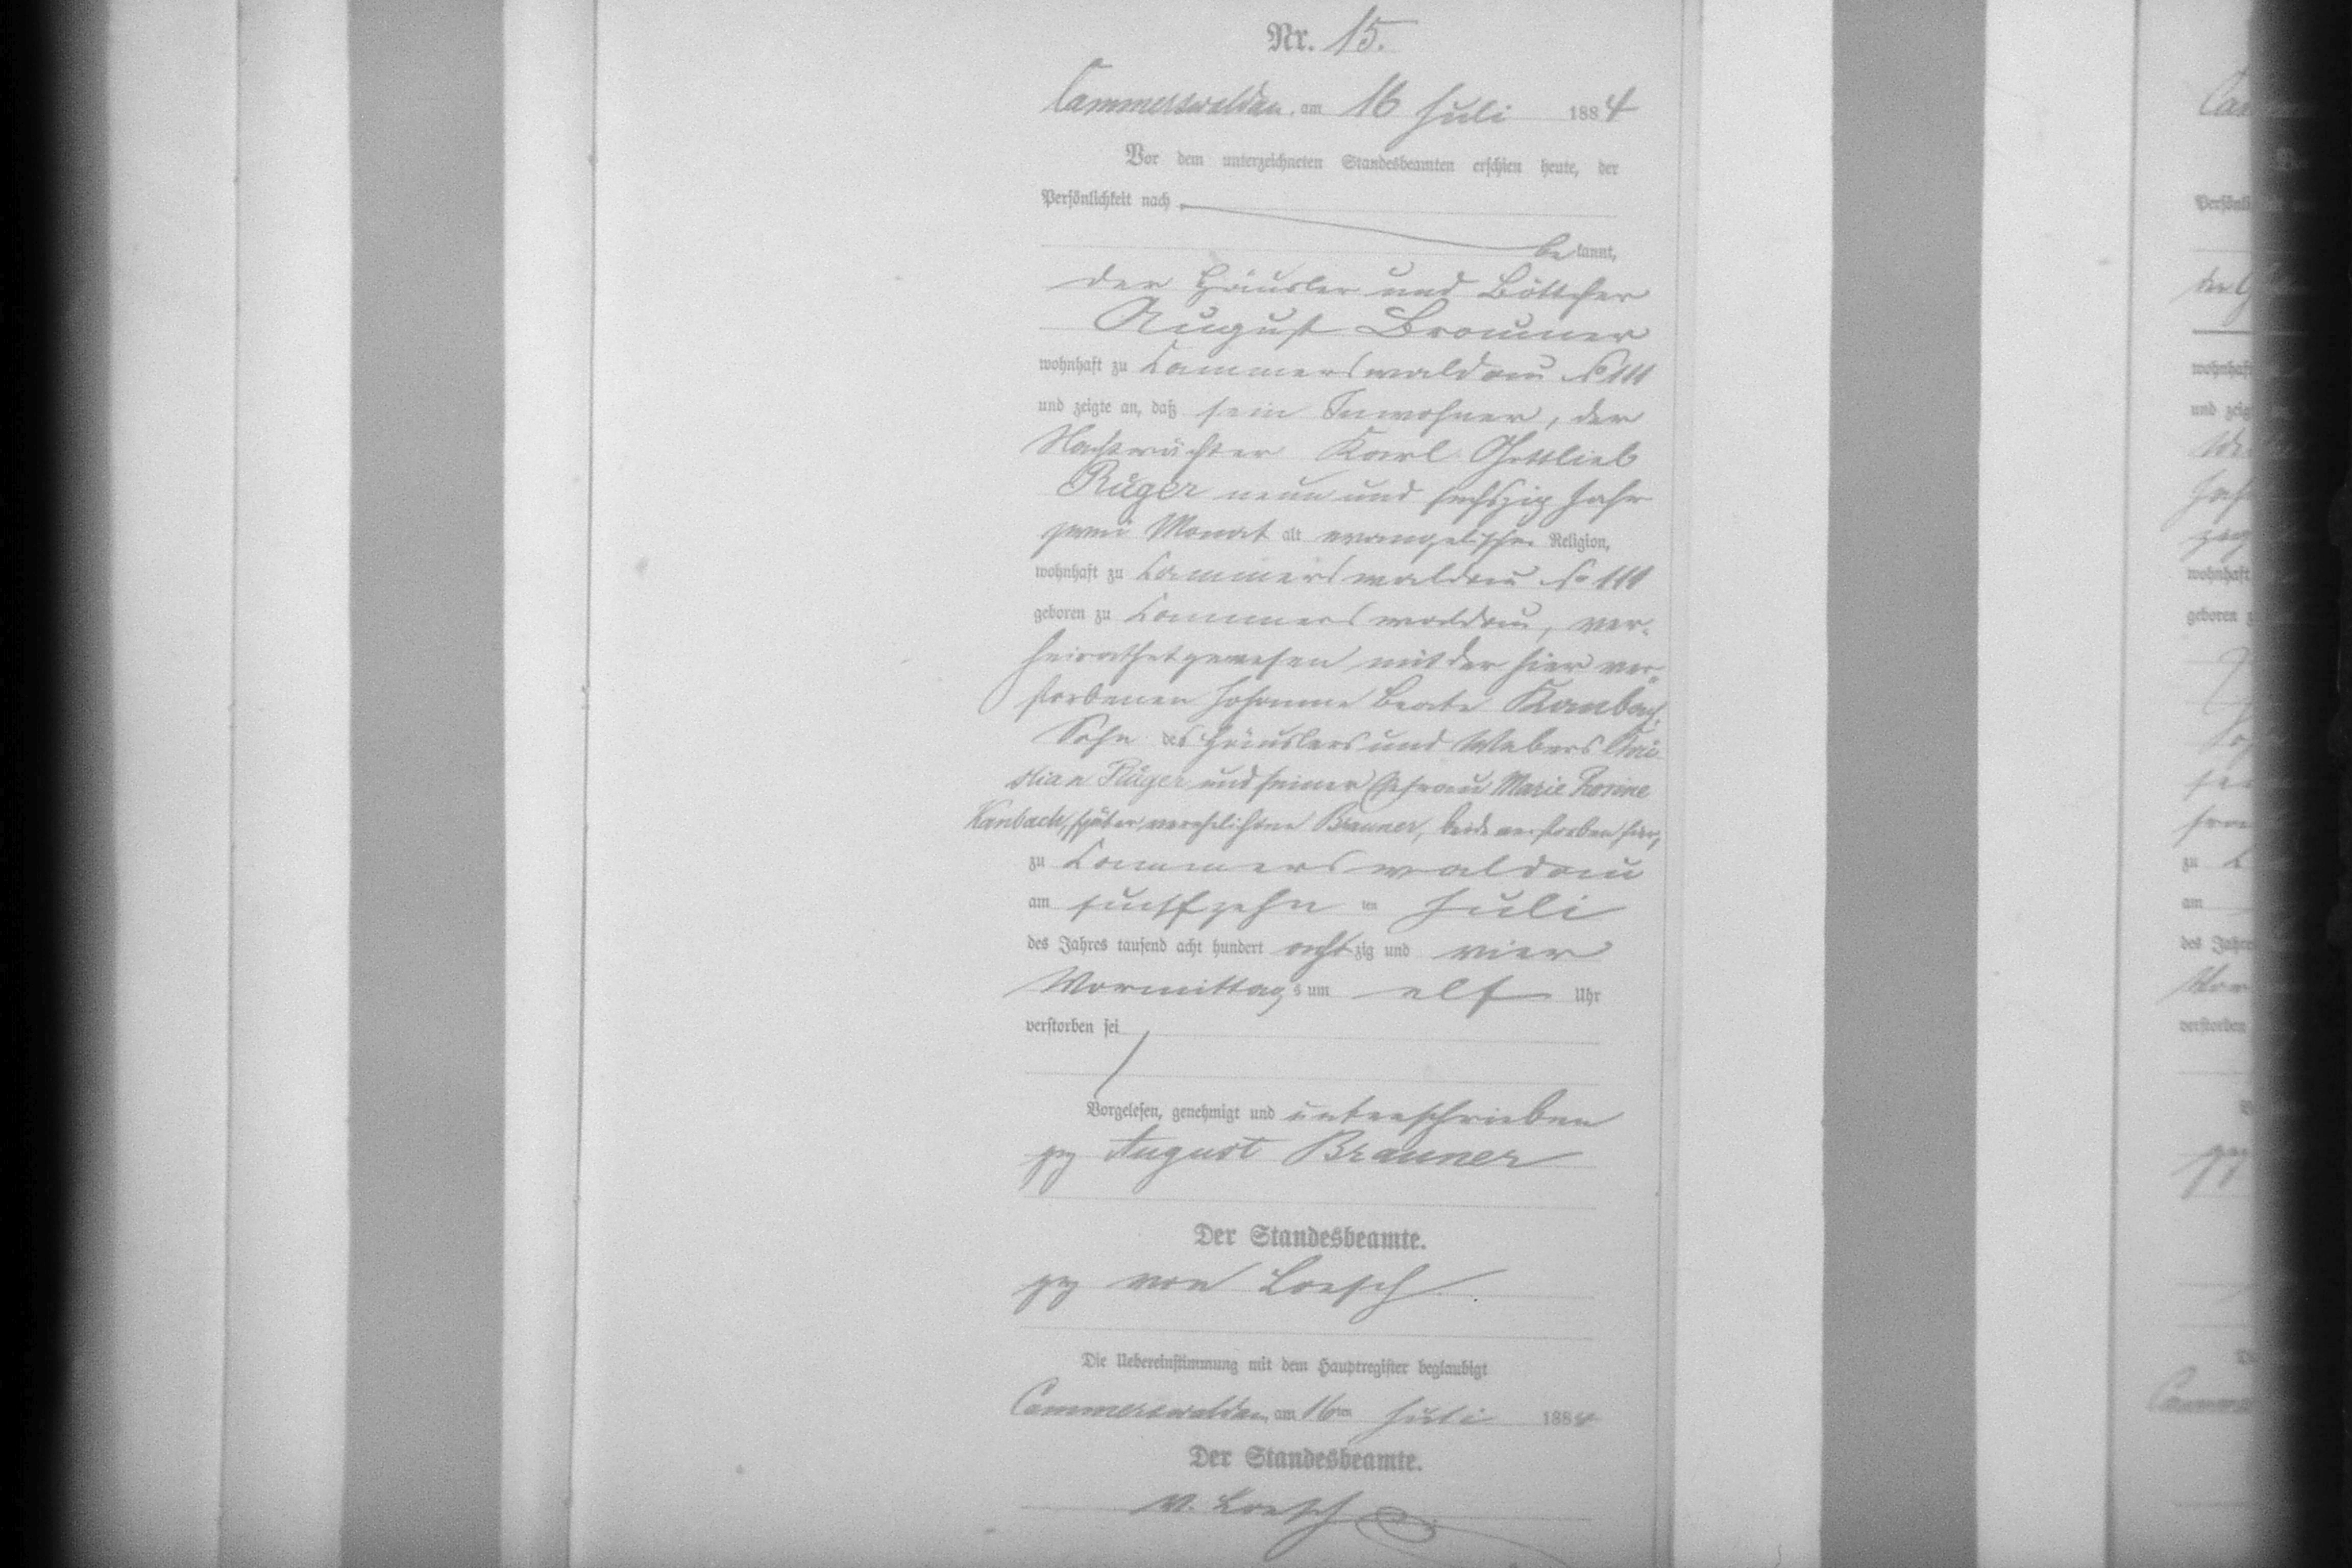 Nr. 15.
Cammerswaldau, am 16 Juli 1884
Vor dem unterzeichneten Standesbeamten erschien heute, der
Persönlichkeit nach
bekannt,
der Häusler und Böttcher
August Brauner
wohnhaft zu Cammerswaldau No 111
und zeigte an, daß sein Inwohner, der
Nachtwächter Karl Gottlieb
Rüger neun und sechszig Jahr
zwei Monat alt evangelischer Religion,
wohnhaft zu Cammerswaldau No 111
geboren zu Cammerswaldau, ver-
heirathet gewesen mit der hier ver-
storbenen Johanne Beate Kanbach,
Sohn des Häuslers und Webers Chri-
stian Rüger und seiner Ehefrau Marie Rosine
Kanbach, später verehelichte Brauner, beide verstorben hier,
zu Cammerswaldau
am fünfzehnten Juli
des Jahres tausend acht hundert achtzig und vier
Vormittags um elf Uhr
verstorben sei
Vorgelesen, genehmigt und unterschrieben
gez August Brauner
Der Standesbeamte.
gez von Loesch
Die Uebereinstimmung mit dem Hauptregister beglaubigt
Cammerswaldau, am 16ten Juli 1884
Der Standesbeamte.
v. Loesch
wohnhaft
geboren
zu
am
des Jahre
verstorben